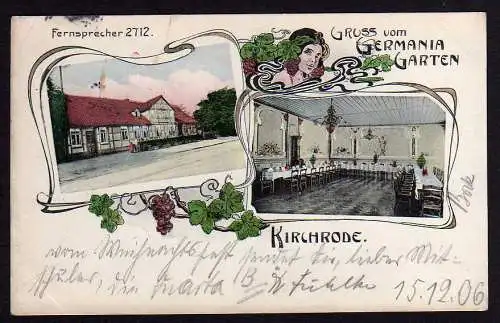 Fernsprecher 2712.
Gruss vom
Germania
Garten
Kirchrode.
vom Weihnachtsfest sendet Dir, lieber Mit-
schüler, die Quarta B
15.12.06